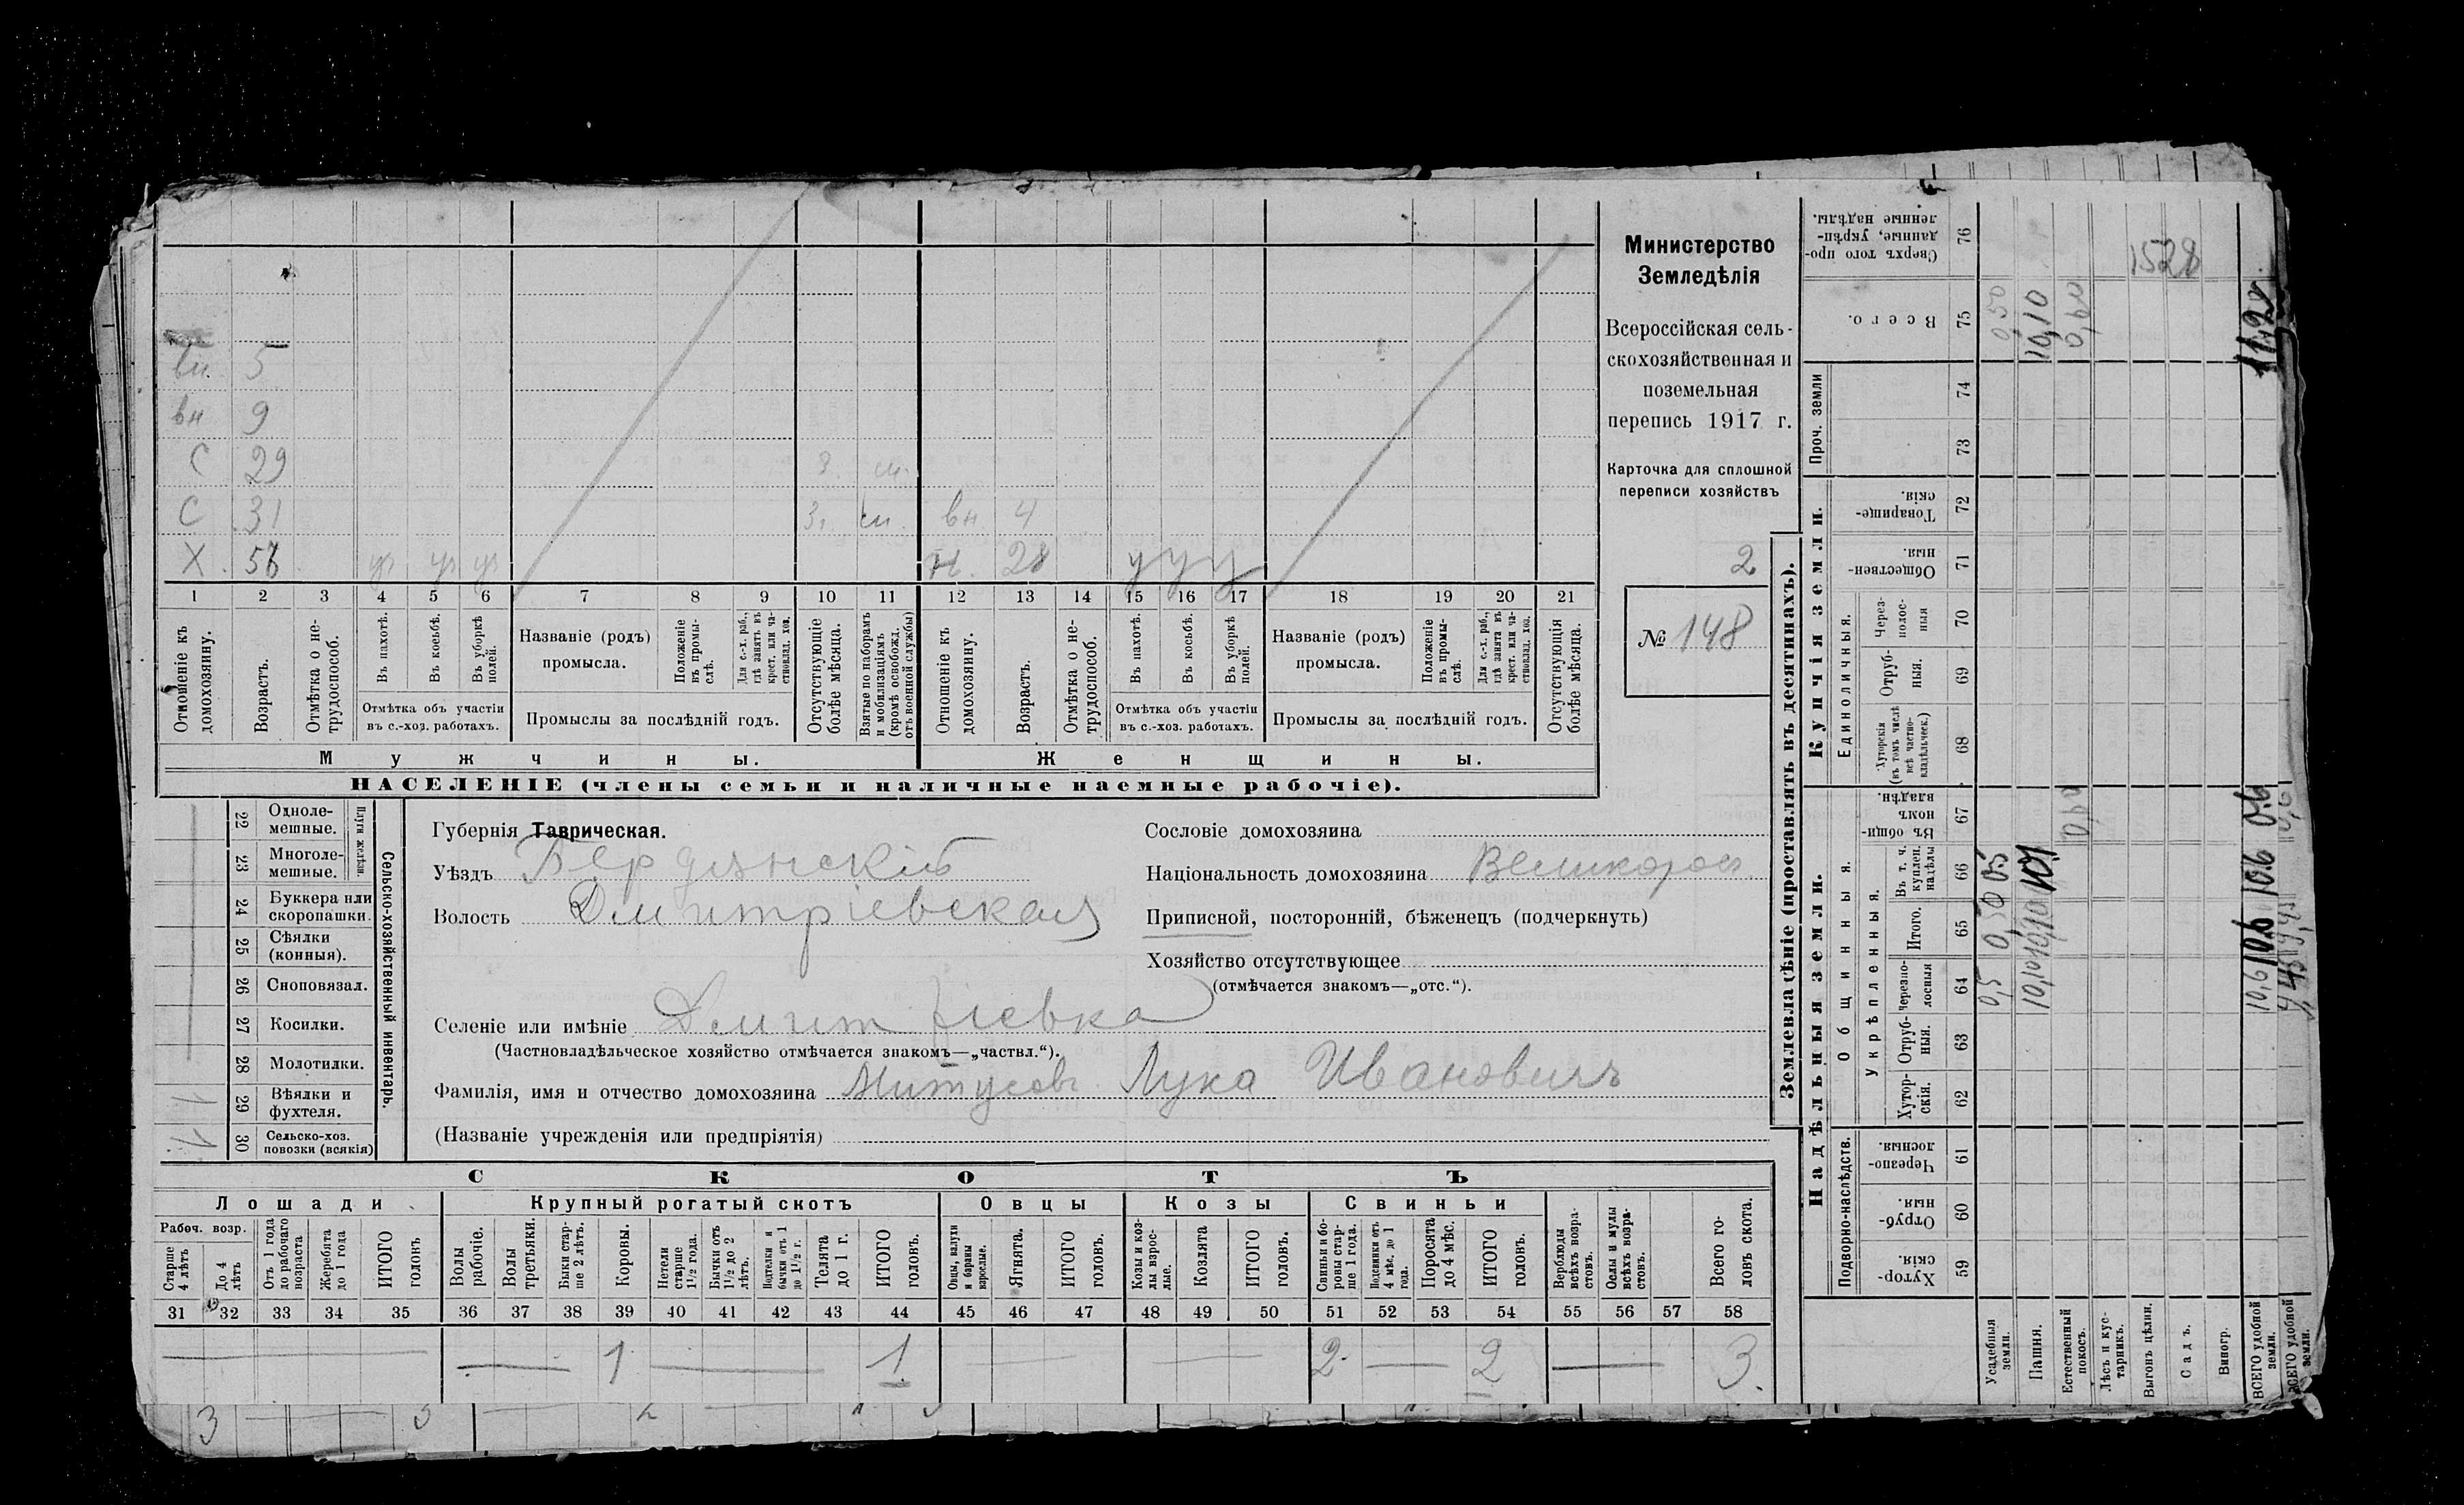 вн. 5
вн 9
С 29 3. сл.
С 31 3. сл. вн 4
Х 56 ур ур ур н. 28 у у у
1 2 3 4 5 6 7 8 9 10 11 12 13 14 15 16 17 18 19 20 21
Отношеніе къ домохозяину.
Возрастъ.
Отмѣтка о не-трудоспособ.
Въ пахотѣ.
Въ косьбѣ.
Въ уборкѣ полей.
Отмѣтка объ участіи
въ с.-хоз. работахъ.
Названіе (родъ)
промысла.
Положеніе въ промы-слѣ.
Для с.-х. раб., гдѣ занятъ въ крест. или ча-стновлад. хоз.
Промыслы за послѣдній годъ.
Отсутствующіе болѣе мѣсяца.
Взятые по наборамъ и мобилизаціямъ (кромѣ освобожд. отъ военной службы)
Отношеніе къ домохозяину.
Возрастъ.
Отмѣтка о не-трудоспособ.
Въ пахотѣ.
Въ косьбѣ.
Въ уборкѣ полей.
Отмѣтка объ участіи
въ с.-хоз. работахъ.
Названіе (родъ)
промысла.
Положеніе въ промы-слѣ.
Для с.-х. раб., гдѣ занята въ крест. или ча-стновлад. хоз.
Промыслы за послѣдній годъ.
Отсутствующія болѣе мѣсяца.
Мужчины. Женщины.
НАСЕЛЕНІЕ (члены семьи и наличные наемные рабочіе).
Министерство
Земледѣлія
Всероссійская сель-
скохозяйственная и
поземельная
перепись 1917 г.
Карточка для сплошной
переписи хозяйствъ
2
№ 148
22 Одноле-мешные.
23 Многоле-мешные.
Плуги желѣзн.
24 Буккера или скоропашки.
25 Сѣялки (конныя).
26 Сноповязал.
27 Косилки.
28 Молотилки.
29 Вѣялки и фухтеля. 1
30 Сельско-хоз. повозки (всякія) 1
Сельско-хозяйственный инвентарь.
Губернія Таврическая.
Уѣздъ Бердянскій
Волость Дмитріевская
Сословіе домохозяина
Національность домохозяина Великоросъ
Приписной, посторонній, бѣженецъ (подчеркнуть)
Хозяйство отсутствующее
(отмѣчается знакомъ—„отс.“).
Селеніе или имѣніе Дмитріевка
(Частновладѣльческое хозяйство отмѣчается знакомъ—„частвл.“).
Фамилія, имя и отчество домохозяина Митусовъ Лука Ивановичъ
(Названіе учрежденія или предпріятія)
СКОТЪ
Лошади Крупный рогатый скотъ Овцы Козы Свиньи
Рабоч. возр.
Старше 4 лѣтъ
До 4 лѣтъ
Отъ 1 года до рабочаго возраста
Жеребята до 1 года
ИТОГО головъ
Волы рабочіе.
Волы третьяки.
Быки стар-ше 2 лѣтъ.
Коровы.
Нетели старше 1 1/2 года.
Бычки отъ 1 1/2 до 2 лѣтъ.
Подтелки и бычки отъ 1 до 1 1/2 г.
Телята до 1 г.
ИТОГО головъ.
Овцы, валухи и бараны взрослые.
Ягнята.
ИТОГО головъ.
Козы и коз-лы взрос-лые.
Козлята
ИТОГО головъ.
Свиньи и бо-ровы стар-ше 1 года.
Подсвинки отъ 4 мѣс. до 1 года.
Поросята до 4 мѣс.
ИТОГО головъ.
Верблюды всѣхъ возра-стовъ.
Ослы и мулы всѣхъ возра-стовъ.
Всего го-ловъ скота.
31 32 33 34 35 36 37 38 39 40 41 42 43 44 45 46 47 48 49 50 51 52 53 54 55 56 57 58
1 1 2 2 3.
Землевладѣніе (проставлять въ десятинахъ).
Надѣльныя земли. Купчія земли. Проч. земли
Подворно-наслѣдств.
Общинныя.
Укрѣпленныя.
Единоличныя.
Хутор-скія. 59
Отруб-ныя. 60
Черезпо-лосныя. 61
Хутор-скія. 62
Отруб-ныя. 63
Черезпо-лосныя 64
Итого. 65
Въ т. ч. куплен. надѣлы 66
Въ общи-номъ владѣн. 67
Хуторскія (въ томъ числѣ всѣ частно-владѣльческ.) 68
Отруб-ныя. 69
Через-полос-ныя 70
Обществен-ныя. 71
Товарище-скія. 72
73 74
Всего. 75
Сверхъ того про-данные, укрѣп-ленные надѣлы. 76
Усадебныя земли. 0,5 0,50 0,5 0,50
Пашня. 10,10 10,10 10,1 10,10
Естественный покосъ. 0,60 0,60
Лѣсъ и кус-тарникъ.
Выгонъ цѣлин. 1528
Садъ.
Виногр.
ВСЕГО удобной земли. 10,6 10,6 10,6 0,6 11,20
ВСЕГО удобной земли.
3